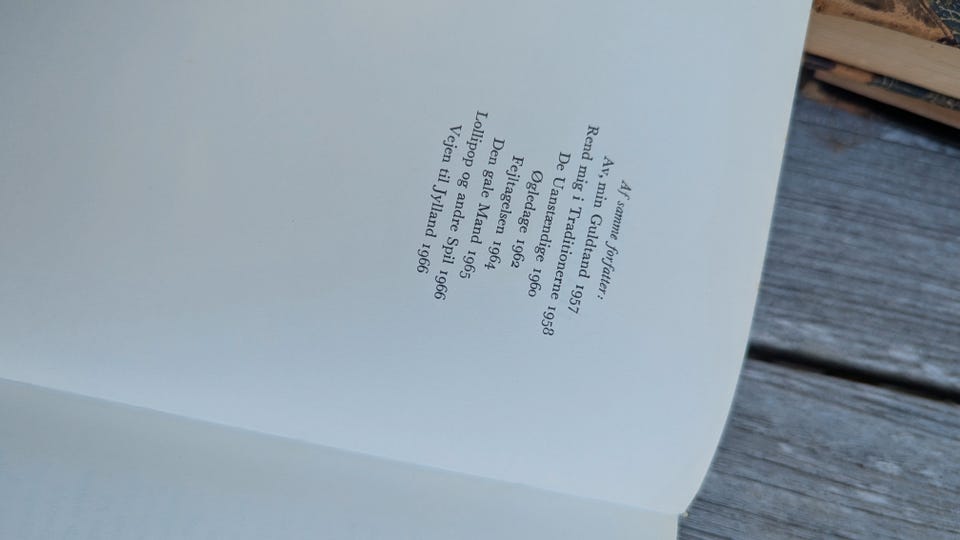 Af samme forfatter:
Av, min Guldtand 1957
Rend mig i Traditionerne 1958
De Uanstændige 1960
Øgledage 1962
Fejltagelsen 1964
Den gale Mand 1965
Lollipop og andre Spil 1966
Vejen til Jylland 1966